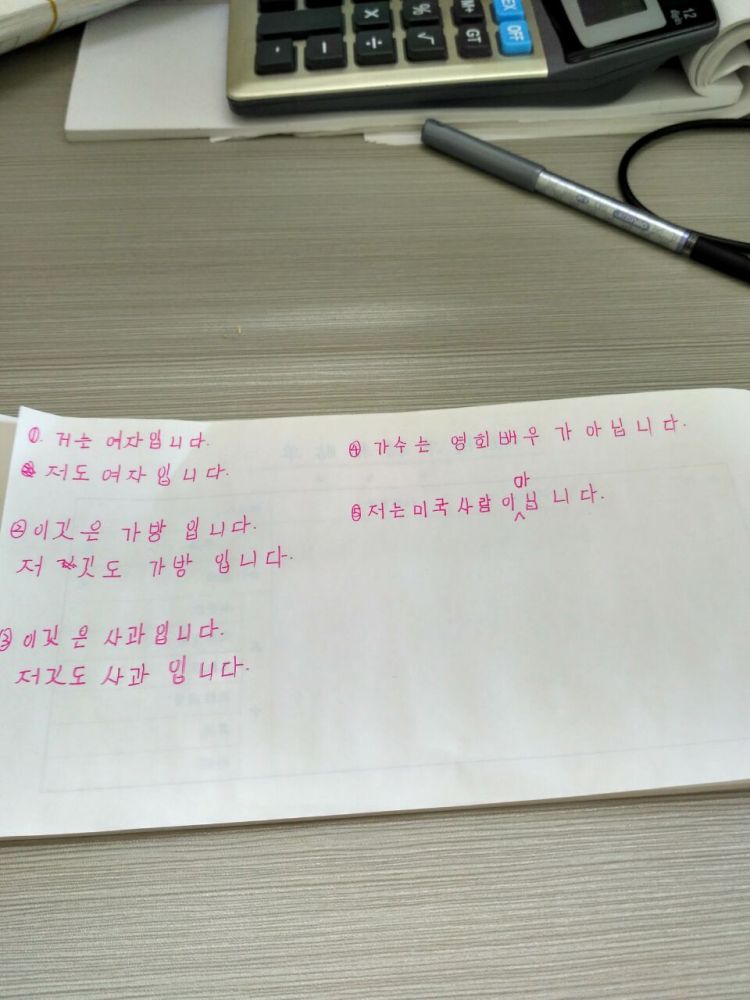 X % M+ EX
· - ÷ √ GT OFF
12
① 거는 여자입니다.
저도 여자입니다.
② 이깃은 가방 입니다.
저 깃도 가방 입니다.
③ 이깃은 사과입니다.
저깃도 사과 입니다.
④ 가수는 영회배우 가 아닙니다.
⑤ 저는 미국 사람 이 아 닙 니 다.